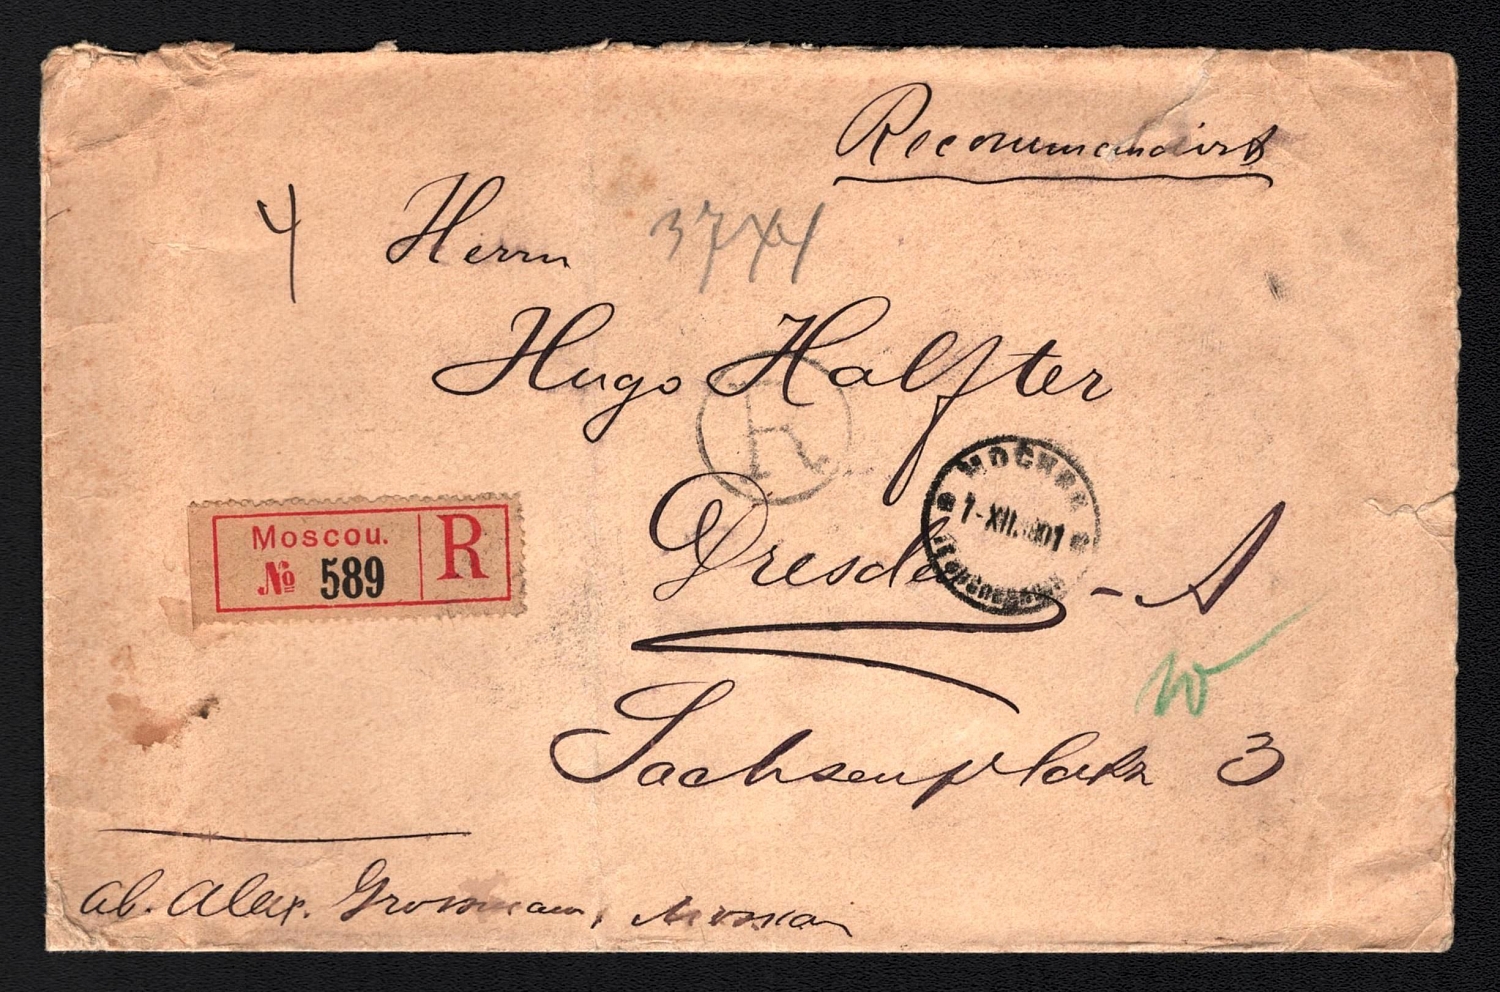 Recommandirt
4 Herrn
3744
Hugo Halfter
R
МОСКВА
1-XII.1901
Dresden - A
Moscou.
№ 589
R
Sachsenplatz 3
ab. Alex. Grossmann, Moskau